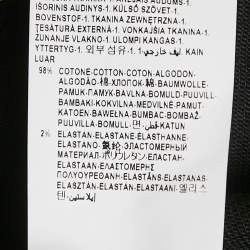 IŠORINIS AUDINYS-1. KÜLSŐ SZÖVET-1.
BOVENSTOF-1. TKANINA ZEWNĘTRZNA-1.
TESĂTURĂ EXTERNĂ-1. VONKAJŠIA TKANINA-1.
ZUNANJE VLAKNO-1. ULOMPI KANGAS-1.
YTTERTYG-1. 외부 섬유-1. ليف خارجي-1. KAIN
LUAR
98% COTONE-COTTON-COTON-ALGODON-
ALGODÃO-棉-ХЛОПОК-綿-BAUMWOLLE-
PAMUK-ΠΑΜΥΚ-BAVLNA-BOMULD-PUUVILL-
ΒΑΜΒΑΚΙ-KOKVILNA-MEDVILNĖ-PAMUT-
KATOEN-BAWEŁNA-BUMBAC-BOMBAŽ-
PUUVILLA-BOMULL-면-قطن-KATUN
2% ELASTAN-ELASTANE-ELASTHANNE-
ELASTANO-氨纶-ЭЛАСТОМЕРНЫЙ
МАТЕРИАЛ-ポリウレタン-ЕЛАСТАН-
ELAASTAN-ΕΛΑΣΤΟΜΕΡΗΣ
ΠΟΛΥΟΥΡΕΘΑΝΗ-ELASTĀNS-ELASTANAS-
ELASZTÁN-ELASTAN-ELASTAANI-엘라스
텐-إيلاستين